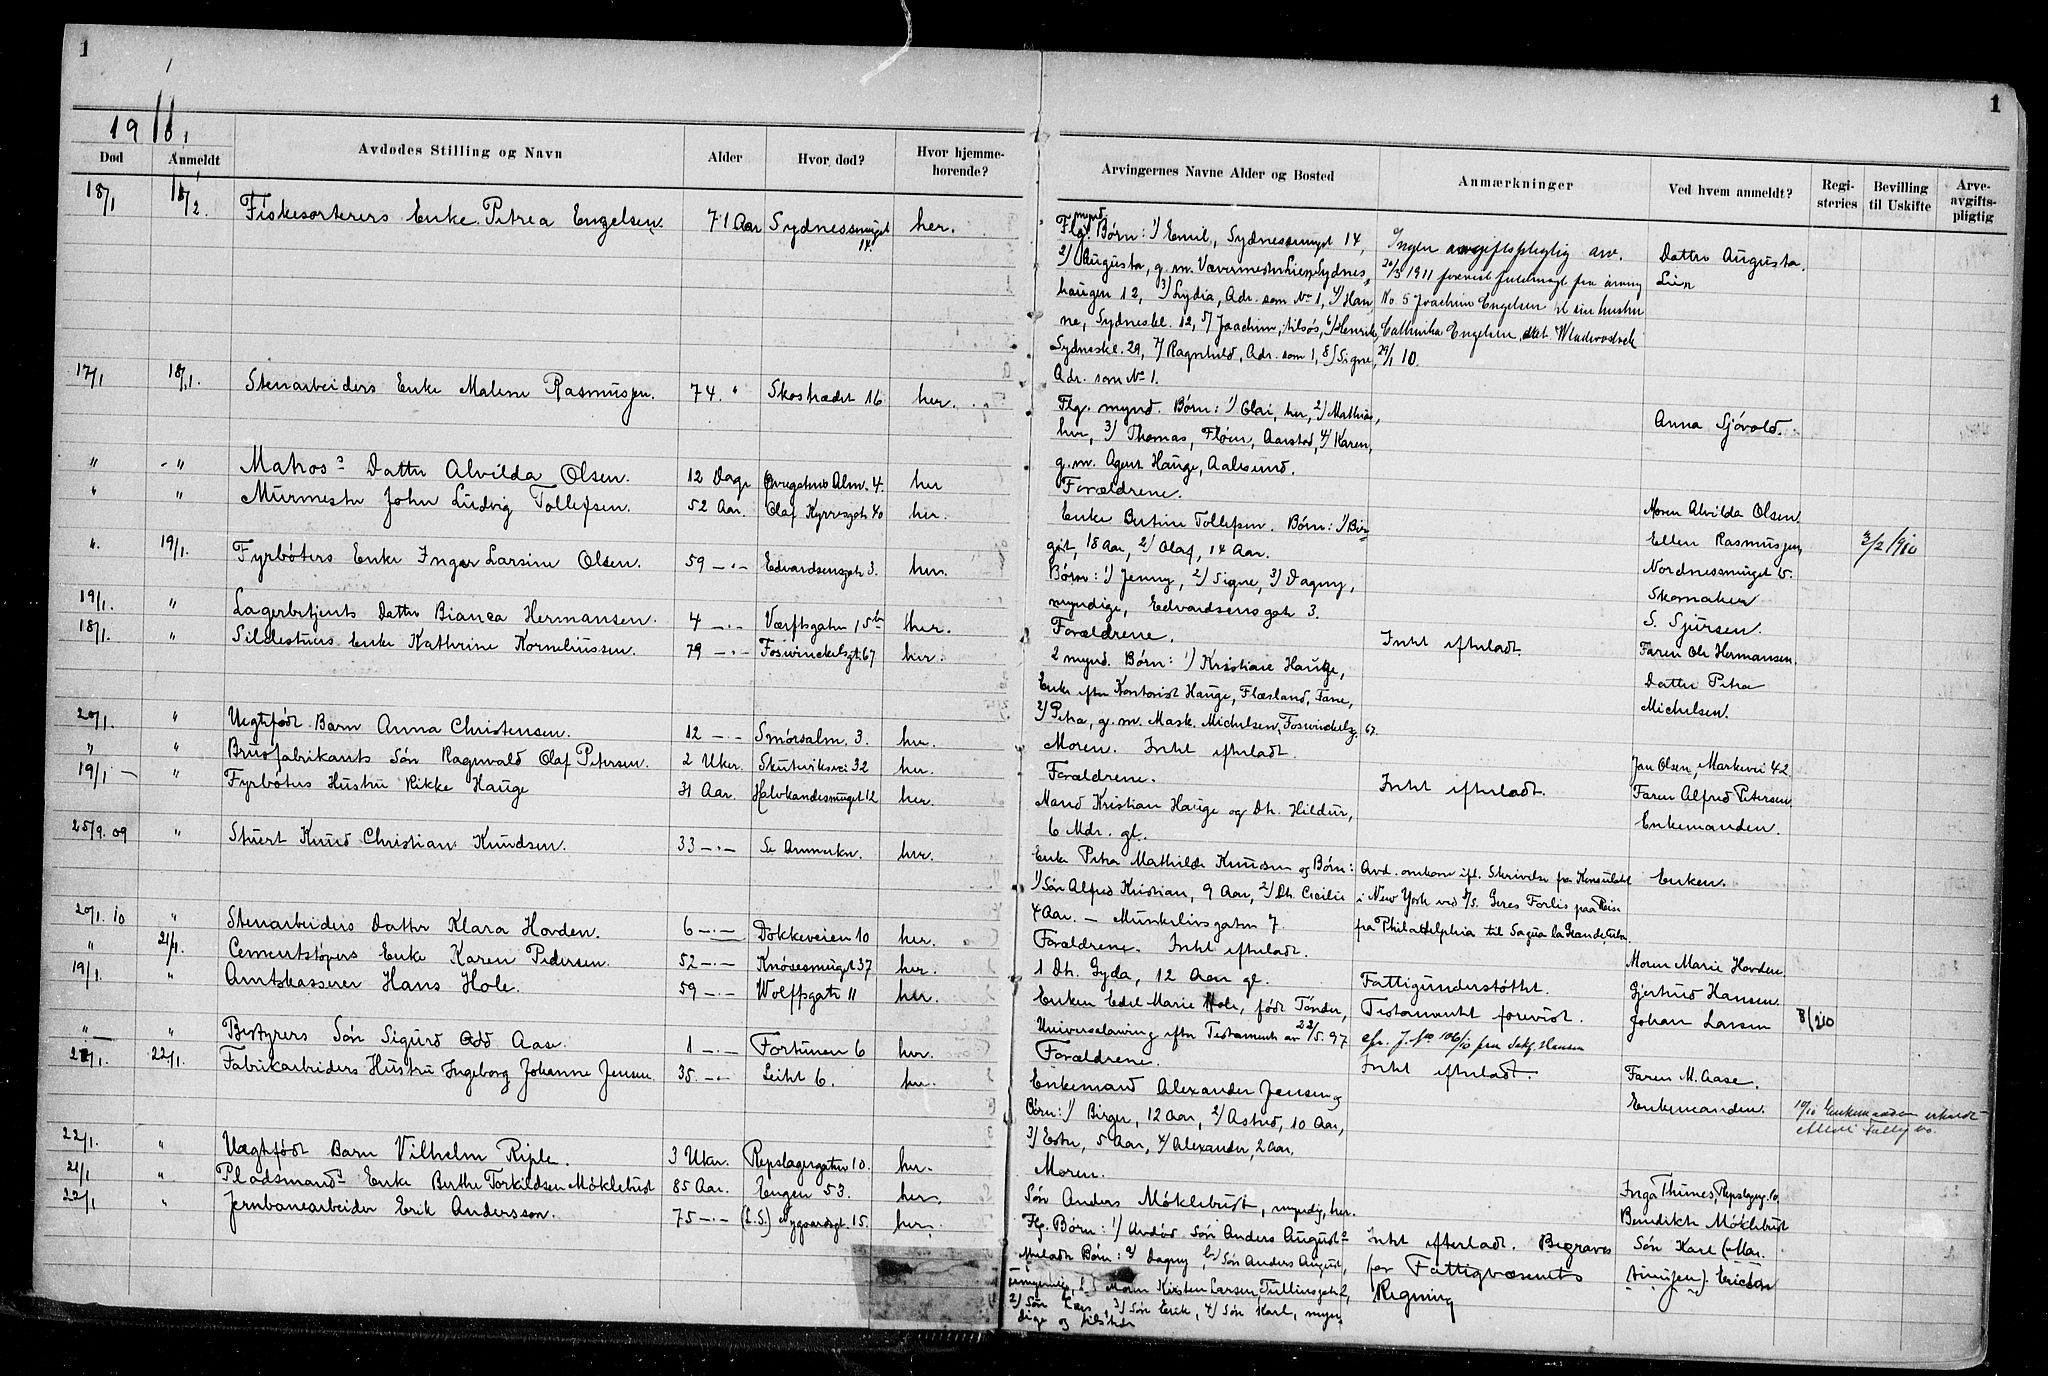 1
1
19 10.
Død Anmeldt Avdødes Stilling og Navn Alder Hvor død? Hvor hjemmehørende?
18/1 18/2. Fiskesorterers Enke Petrea Engelsen. 71 Aar Sydnessmuget 14. her.
17/1 18/1. Stenarbeiders Enke Malene Rasmussen. 74 " Skostrædet 16 her.
" " Matros's Datter Alvilda Olsen. 12 Dage Alm. 4. her
" " Murmester John Ludvig Tollefsen. 52 Aar. Olaf Kyrresgate 40 her.
" 19/1. Fyrbøters Enke Inger Larsine Olsen. 59 -"- Edvardsensgate 3. her.
19/1. " Lagerbetjents Datter Bianca Hermansen. 4 -"- Værftsgaten 15 b her.
18/1. " Sildestuers Enke Kathrine Korneliussen. 79 -"- Foswinckelsgt. 67 her.
20/1. " Uegtefødt Barn Anna Christensen. 12 -"- Smørsalm. 3. her.
" " Brusfabrikants Søn Ragnvald Olaf Petersen. 2 Uker. Skuteviksvei 32 her.
19/1 " Fyrbøters Hustru Rikke Hauge 31 Aar. Halvkandesmuget 12 her.
25/9. 09 " Stuert Knud Christian Knudsen. 33 -"- Se Anmerkn. her.
20/1. 10 " Stenarbeiders Datter Klara Hovden. 6 -"- Dokkeveien 10 her.
" 21/1. Cementstøpers Enke Karen Pedersen. 52 -"- Knøsesmuget 37 her.
19/1. " Amtskasserer Hans Hole. 59 -"- Wolffsgate 11 her.
" " Bestyrers Søn Sigurd Odd Aase. 1 -"- Fortunen 6 her.
21/1. 22/1. Fabrikarbeiders Hustru Ingeborg Johanne Jensen. 35. -"- Leitet 6. her.
22/1. " Uegtefødt Barn Vilhelm Riple. 3 Uker. Repslagergaten 10. her.
21/1 " Pladsmands Enke Berthe Torkildsen Møklebust 85 Aar. Engen 53. her.
22/1 " Jernbanearbeider Erik Andersson. 75 -"- (L.S.) Nygaardsgt. 15. her.
Arvingernes Navne Alder og Bosted Anmærkninger Ved hvem anmeldt? Registeries Bevilling til Uskifte Arveavgiftspligtig
mynd.
Flg. Børn: 1) Emil, Sydnessmuget 14, Ingen avgiftspligtig arv. Datter Augusta
2) Augusta, g. m. Vævermester Lien, Sydnes- 20/3 1911 forevist fuldmagt fra arving Lien
haugen 12, 3) Lydia, Adr. som No 1, 4) Han- No. 5 Joachim Engelsen til sin hustru
ne, Sydneskl. 12, 5) Joachim, tilsøs, 6) Henrik, Cathinka Engelsen dat. Wladivostock
Sydneskl. 29, 7) Ragnhild, Adr. som 1, 8) Signe, 29/1 10.
Adr. som No 1.
Flg. mynd. Børn: 1) Olai, her, 2) Mathias, Anna Sjøvold.
her, 3) Thomas, Fløen, Aarstad, 4) Karen,
g. m. Agent Hauge, Aalesund.
Forældrene. Moren Alvilda Olsen.
Enke Bertine Tollefsen. Børn: 1) Bir- Ellen Rasmussen, 3/2 1910
git, 18 Aar, 2) Olaf, 14 Aar. Nordnessmuget 15.
Børn: 1) Jenny, 2) Signe, 3) Dagny, Skomaker
myndige, Edvardsensgate 3. S. Sjursen.
Forældrene. Intet efterladt. Faren Ole Hermansen.
2 mynd. Børn: 1) Kristiane Hauge, Datter Petra
Enke efter Kontorist Hauge, Flæsland, Fane, Michelsen.
2) Petra, g. m. Mask. Michelsen, Foswinckelsg. 67.
Moren. Intet efterladt. Jan Olsen, Markevei 42
Forældrene. Intet efterladt. Faren Alfred Petersen
Mand Kristian Hauge og Dt. Hildur, Enkemanden.
6 Mdr. gl.
Enke Petra Mathilde Knudsen og Børn: Avd. omkom ifl. Skrivelse fra Konsulatet Enken.
1) Søn Alfred Kristian, 9 Aar, 2) Dt. Cecilie i New York ved D/S. Geres Forlis paa Reise
4 Aar. – Munkelivsgaten 7. fra Philadelphia til Sagua la Grande, Cuba.
Forældrene. Intet efterladt. Moren Marie Hovden
1 Dt. Gyda, 12 Aar gl. Fattigunderstøttet. Gjertrud Hansen.
Enken Edel Marie Hole, født Tønder, Testamentet forevist. Johan Larsen 8/2 10
Universalarving efter Testamente av 22/5. 97 cfr. J. No 106/10 fra Hansen
Forældrene. Intet efterladt. Faren M. Aase.
Enkemand Alexander Jensen og Enkemanden. Enkemanden erholdt
Børn: 1) Birger, 12 Aar, 2) Astrid, 10 Aar,
3) Ester, 5 Aar, 4) Alexander, 2 Aar.
Moren. Inga Thunes, Repslagerg. 10.
Søn Anders Møklebust, myndig, her. Benedikte Møklebust
Flg. Børn: 1) Avdød Søn Anders August's Intet efterladt. Begraves Søn Karl (Mar-
efterladte Børn: a) Dagny, b) Søn Anders August, for Fattigvæsenets
umyndig, Moren Kirsten Larsen, Tullinsgate 2, Regning
2) Søn Lars, 3) Søn Erik, 4) Søn Karl, myn-
dige og tilstede